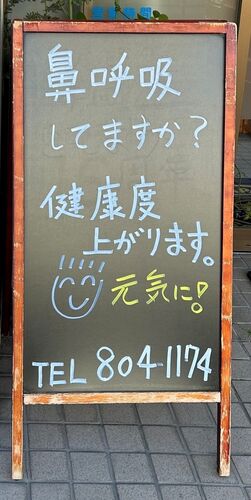 鼻呼吸
してますか?
健康度
上がります。
元気に!
TEL 804-1174